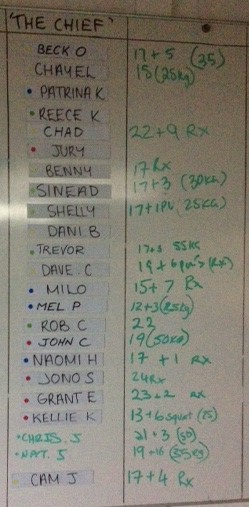 'THE CHIEF'
BECK O 17+5 (35)
CHAYEL 18 (25kg)
PATRINA K
REECE K
CHAD 22+9 Rx
JURY
BENNY 17 Rx
SINEAD 17+3 (30KG)
SHELLY 17+1PU (25KG)
DANI.B
TREVOR 17+3 55KG
DAVE.C 19+6 pu's (Rx)
MILO 15+7 Rx
MEL P 12+3 (25kg)
ROB C 22
JOHN C 19 (50KG)
NAOMI H 17+1 RX
JONO S 24RX
GRANT E 23+2 RX
KELLIE K 13+6 squat (25)
CHRIS.J 21+3 (50)
NAT.J 19+16 (35kg)
CAM J 17+4 Rx